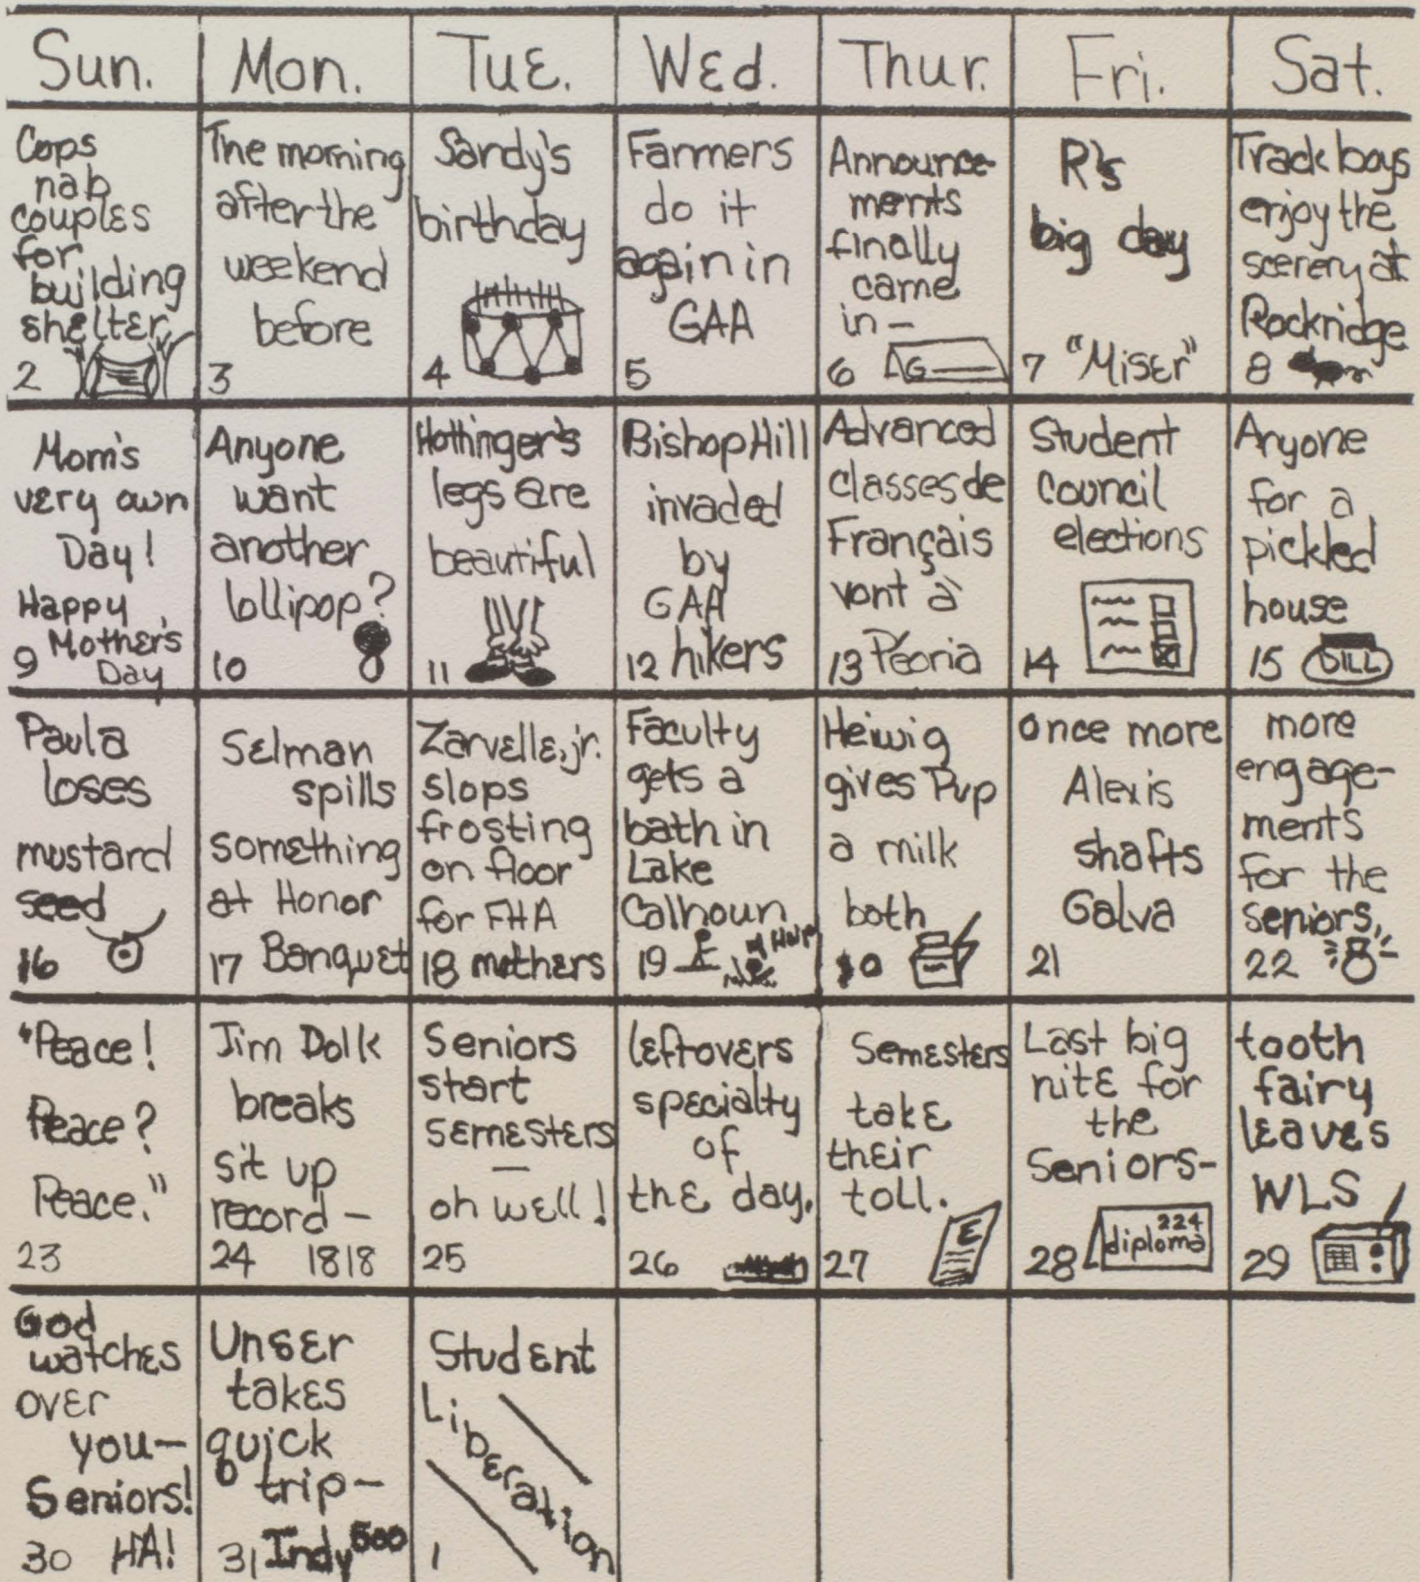 Sun.
Mon.
Tue.
Wed.
Thur.
Fri.
Sat.
Cops
nab
couples
for
building
shelter
2
The morning
after the
weekend
before
3
Sandy's
birthday
4
Farmers
do it
again in
GAA
5
Announce-
ments
finally
came
in -
6
G
R's
big day
7 "Miser"
Track boys
enjoy the
scenery at
Rockridge
8
Mom's
very own
Day!
Happy
Mother's
9 Day
Anyone
want
another
lollipop?
10
Hottinger's
legs are
beautiful
11
Bishop Hill
invaded
by
GAA
12 hikers
Advanced
classes de
Français
vont à
13 Péoria
Student
Council
elections
14
Anyone
for a
pickled
house
15 DILL
Paula
loses
mustard
seed
16
Selman
spills
something
at Honor
17 Banquet
Zarvelle, jr.
slops
frosting
on floor
for FHA
18 mothers
Faculty
gets a
bath in
Lake
Calhoun
19 Help
Heiwig
gives Pup
a milk
bath
Once more
Alexis
shafts
Galva
21
more
engage-
ments
for the
seniors,
22
"Peace!
Peace?
Peace."
23
Jim Dolk
breaks
sit up
record -
24 1818
Seniors
start
semesters
—
oh well!
25
leftovers
specialty
of
the day.
26
Semesters
take
their
toll.
27 E
Last big
nite for
the
Seniors-
28 224
diploma
tooth
fairy
leaves
WLS
29
God
watches
over
you-
Seniors!
30 HA!
Unser
takes
quick
trip-
31 Indy 500
Student
Liberation
1